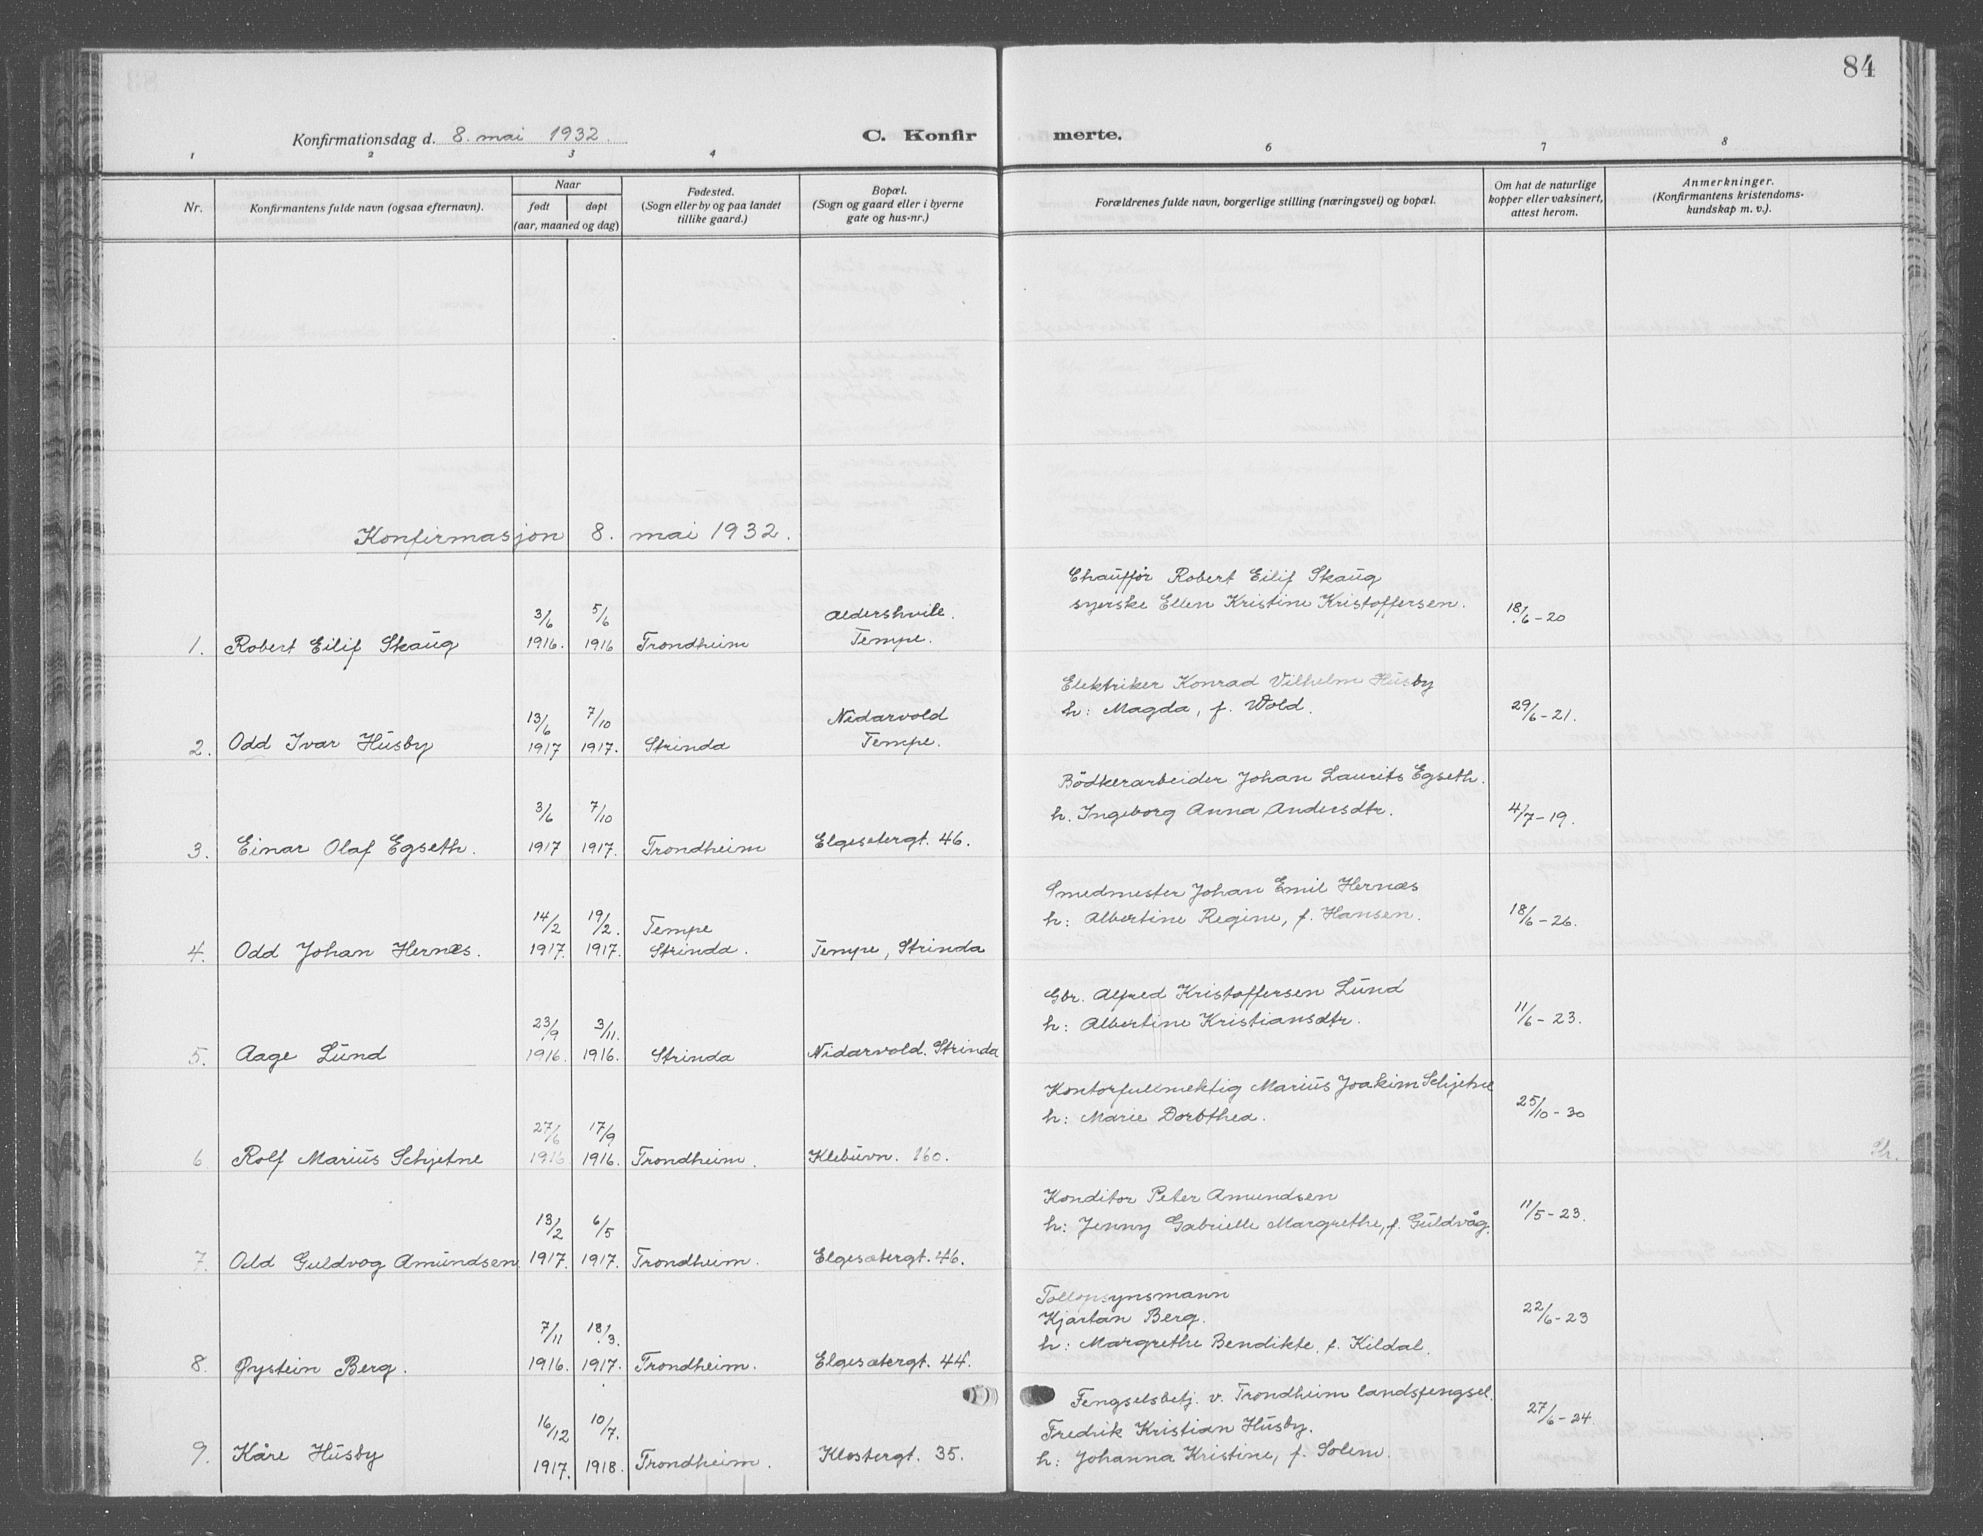 84
Konfirmationsdag d. 8. mai 1932.
C. Konfir merte.
1 2 3 4 6 7 8
Nr.
Konfirmantens fulde navn (ogsaa efternavn).
Naar
født døpt
(aar, maaned og dag)
Fødested.
(Sogn eller by og paa landet
tillike gaard.)
Bopæl.
(Sogn og gaard eller i byerne
gate og hus-nr.)
Forældrenes fulde navn, borgerlige stilling (næringsvei) og bopæl.
Om hat de naturlige
kopper eller vaksinert,
attest herom.
Anmerkninger.
(Konfirmantens kristendoms-
kundskap m. v.).
Konfirmasjon 8. mai 1932.
Chauffør Robert Eilif Skaug
syerske Ellen Kristine Kristoffersen.
3/6 5/6 Aldershvile. 18/6-20
1. Robert Eilif Skaug 1916. 1916 Trondheim Tempe.
Elektriker Konrad Vilhelm Husby
h: Magda, f. Wold.
13/6 7/10 Nidarvold 29/6-21.
2. Odd Ivar Husby 1917 1917. Strinda Tempe.
Bödkerarbeider Johan Laurits Egseth.
h. Ingeborg Anna Andersdtr.
3/6 7/10 4/7-19.
3. Einar Olaf Egseth. 1917 1917. Trondheim Elgesetergt. 46.
Smedmester Johan Emil Hernæs
h: Albertine Regine, f. Hansen.
14/2 19/2. Tempe 18/6-26.
4. Odd Johan Hernæs. 1917. 1917. Strinda. Tempe, Strinda
Gbr. Alfred Kristoffersen Lund
h: Albertine Kristiansdtr.
23/9 3/11. 11/6-23.
5. Aage Lund 1916. 1916. Strinda Nidarvold. Strinda
Kontorfullmektig Marius Joakim Schjetne
h: Marie Dorothea.
27/6 17/9 25/10-30
6 Rolf Marius Schjetne 1916 1916. Trondheim. Klebuvn. 160.
Konditor Peter Amundsen
h: Jenny Gabrielle Margrethe, f. Guldvåg.
13/2 6/5 11/5-23.
7. Odd Guldvog Amundsen 1917. 1917. Trondheim. Elgesætergt. 46.
Tollopsynsmann
Kjartan Berg.
h: Margrethe Bendikte, f. Kildal.
7/11 18/3. 22/6-23
8. Øystein Berg. 1916. 1917. Trondheim. Elgesætergt. 44.
Fengselsbetj. v. Trondheim landsfengsel.
Fredrik Kristian Husby.
h: Johanna Kristine, f. Solem.
16/12 10/7. 27/6-24.
9. Kåre Husby 1917. 1918. Trondheim. Klostergt. 35.